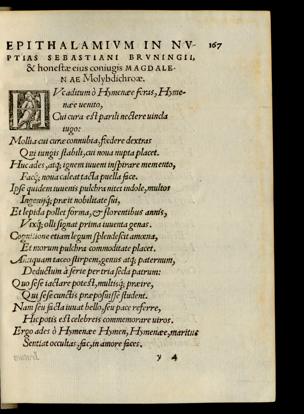 EPITHALAMIVM IN NV- 167
PTIAS SEBASTIANI BRVNINGII,
& honestæ eius coniugis MAGDALE-
NAE Molybdichroæ.
HVc aditum ô Hymenæe feras, Hyme-
næe uenito,
Cui cura est parili nectere uincla
iugo:
Mollia cui curæ connubia, fœdere dextras
Qui iungis stabili, cui noua nupta placet.
Huc ades, atq; ignem iuueni inspirare memento,
Facq; noua caleat tacta puella face.
Ipse quidem iuuenis pulchra nitet indole, multos
Ingenijq; præit nobilitate sui,
Et lepida pollet forma, & florentibus annis,
Vixq; olli signat prima iuuenta genas.
Cognitione etiam legum splendescit amœna,
Et morum pulchra commoditate placet.
Antiquam taceo stirpem, genus atq; paternum,
Deductum à serie per tria secla patrum:
Quo sese iactare potest, multisq; præire,
Qui sese cunctis præposuisse student.
Nam seu facta iuuat bello, seu pace referre,
Hic potis est celebreis commemorare uiros.
Ergo ades ô Hymenæe Hymen, Hymenæe, maritus
Sentiat occultas, fac, in amore faces.
y 4